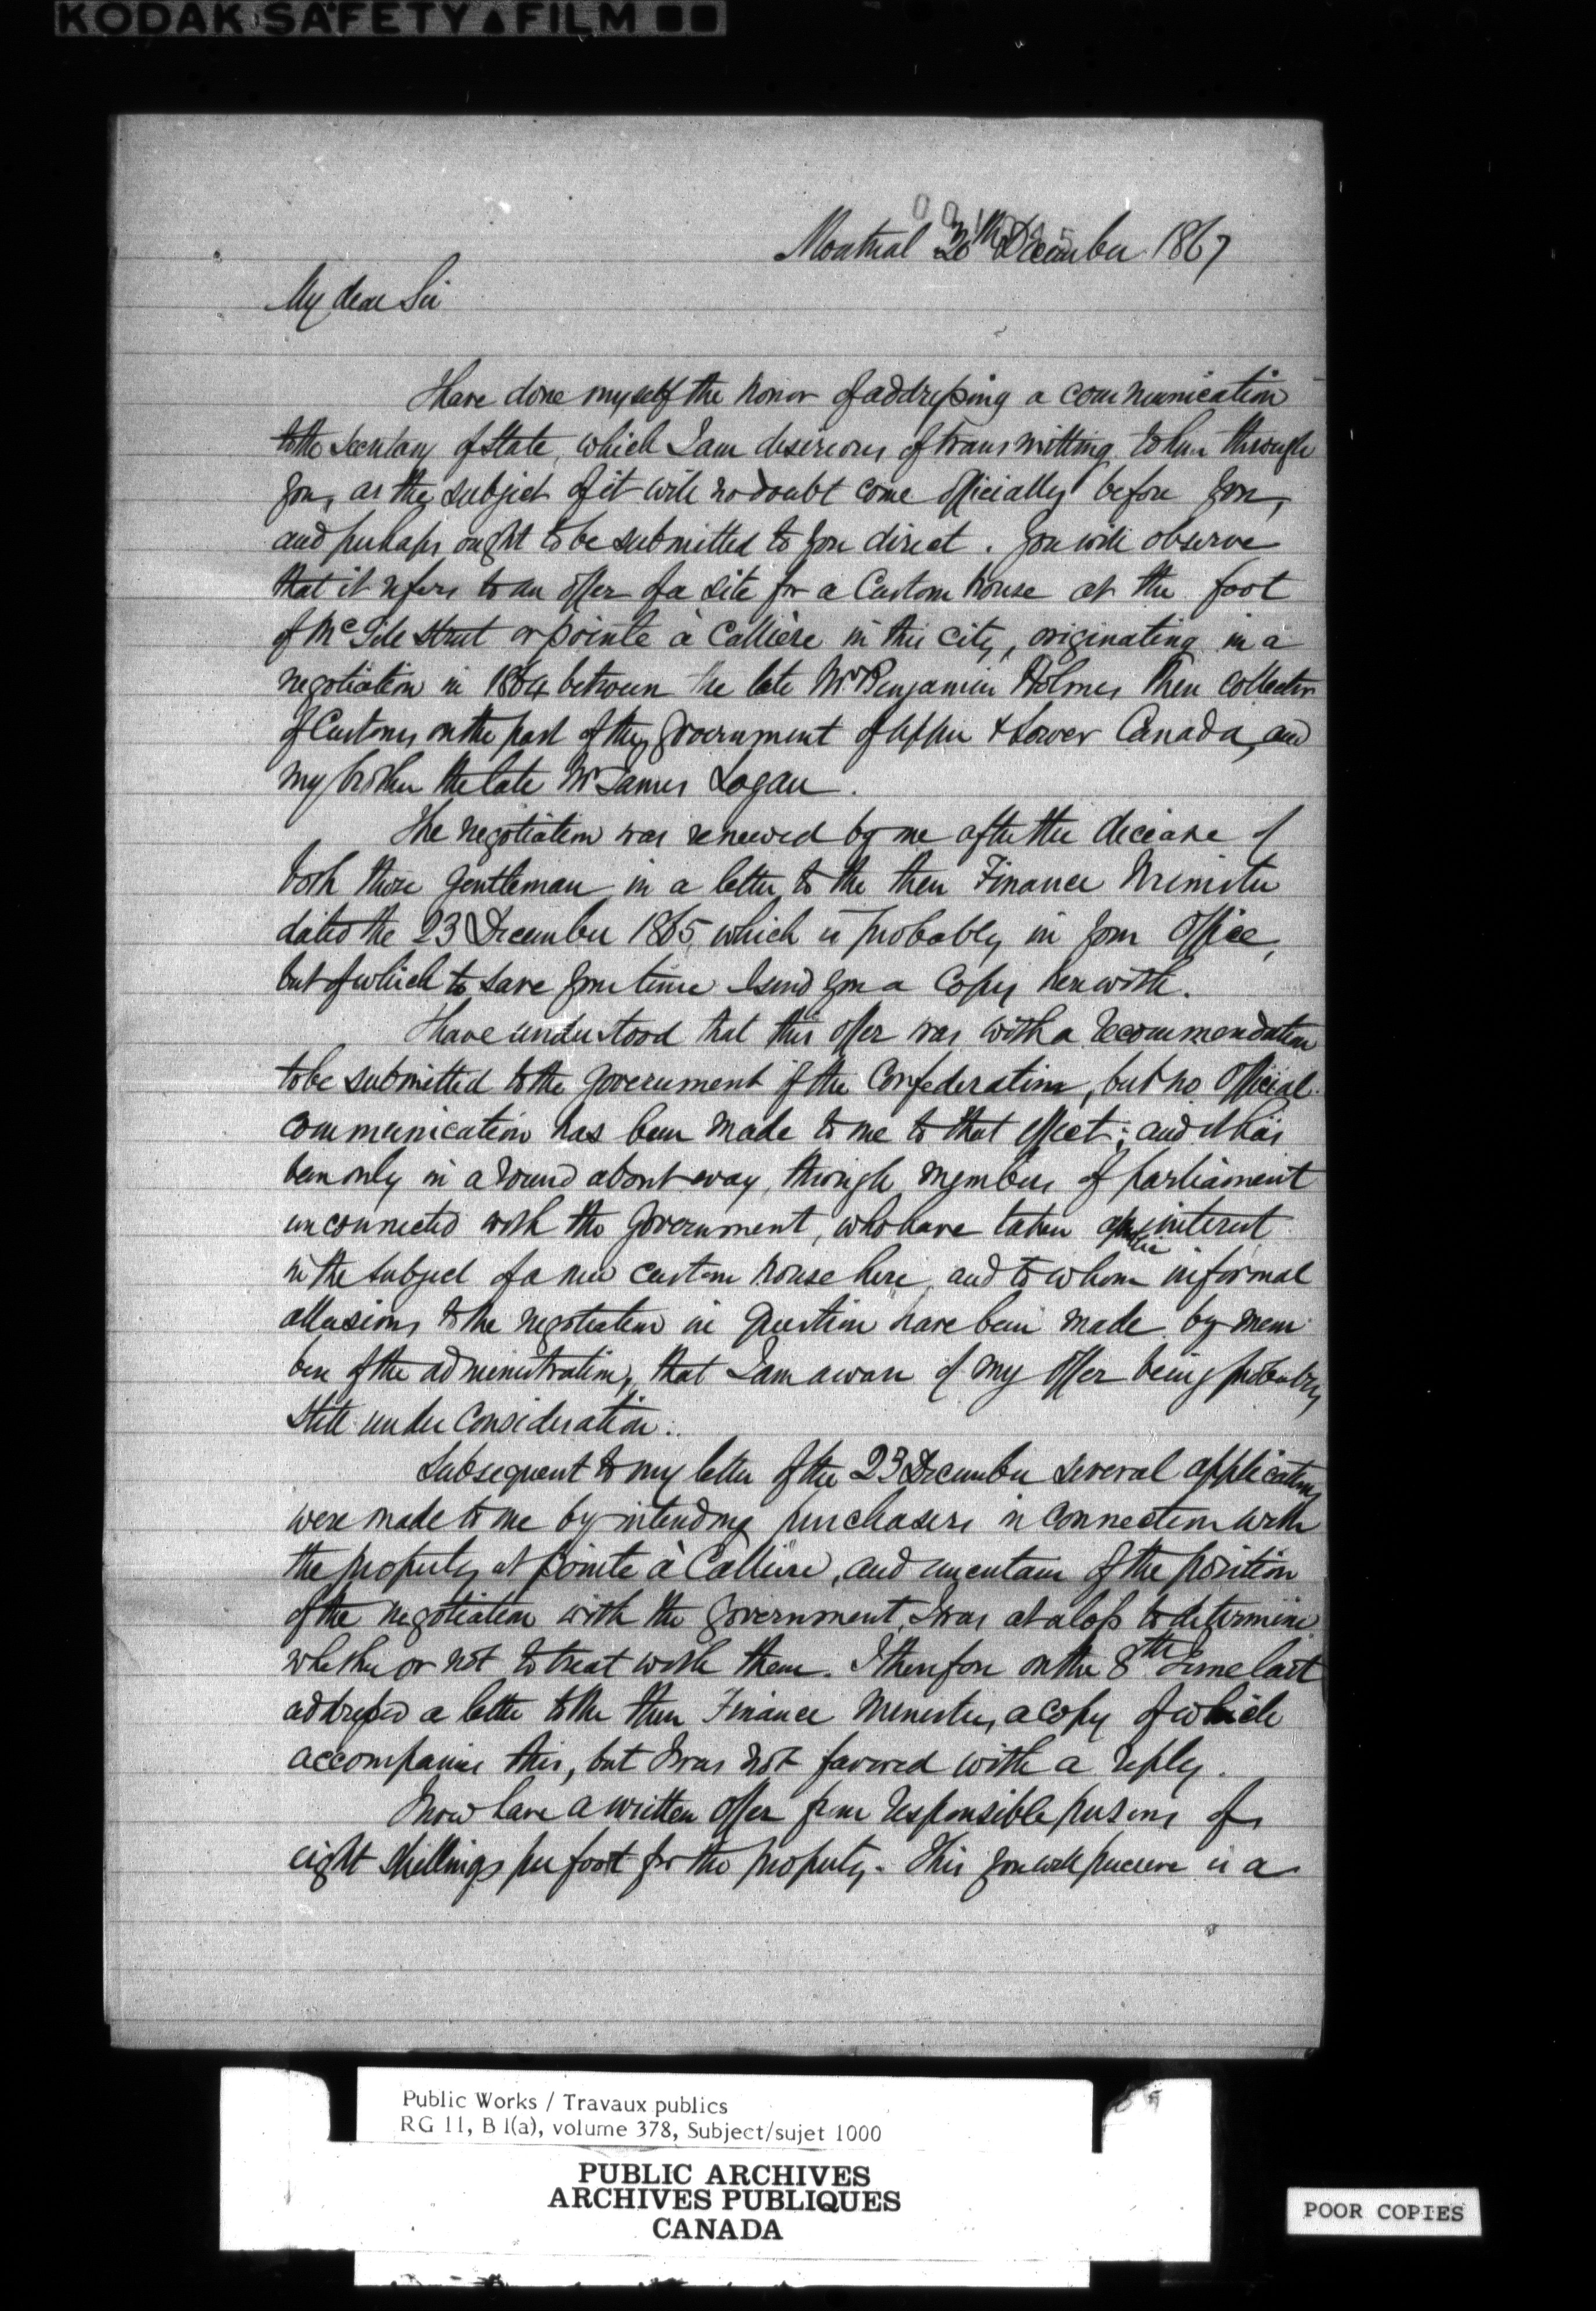 KODAK SAFETY FILM
Montreal 30th December 1867
My dear Sir
I have done myself the honor of addressing a communication
to the Secretary of State, which I am desireous of transmitting to him through
you, as the subject of it will no doubt come officially before you,
and perhaps ought to be submitted to you direct. You will observe
that it refers to an offer of a site for a Custom house at the foot
of McGill Street or pointe à Callière in this city, originating in a
negotiation in 1864 between the late Mr Benjamin Holmes then collector
of Customs on the part of the Government of Upper & Lower Canada, and
my brother the late Mr James Logan.
The negotiation was renewed by me after the decease of
both those Gentleman in a letter to the then Finance Minister
dated the 23 December 1865, which is probably in your Office,
but of which to save you time I send you a Copy herewith.
I have understood that this offer was with a recommendation
to be submitted to the Government of the Confederation, but no Official
communication has been made to me to that effect; and it has
been only in a round about way, through members of parliament
unconnected with the Government, who have taken interest
in the subject of a new custom house here, and to whom informal
allusions to the negotiation in question have been made by mem
bers of the administration, that I am aware of my offer being probably
still under Consideration.
Subsequent to my letter of the 23 December several applications
were made to me by intending purchasers in connection with
the property at pointe à Callière, and uncertain of the position
of the negotiation with the Government, I was at a loss to determine
whether or not to treat with them. I therefore on the 8th June last
addressed a letter to the then Finance Minister, a copy of which
accompanies this, but I was not favored with a reply.
I now have a written offer from responsible persons of
eight shillings per foot for the property. This you will perceive is a
Public Works / Travaux publics
RG 11, B 1(a), volume 378, Subject/sujet 1000
PUBLIC ARCHIVES
ARCHIVES PUBLIQUES
CANADA
POOR COPIES